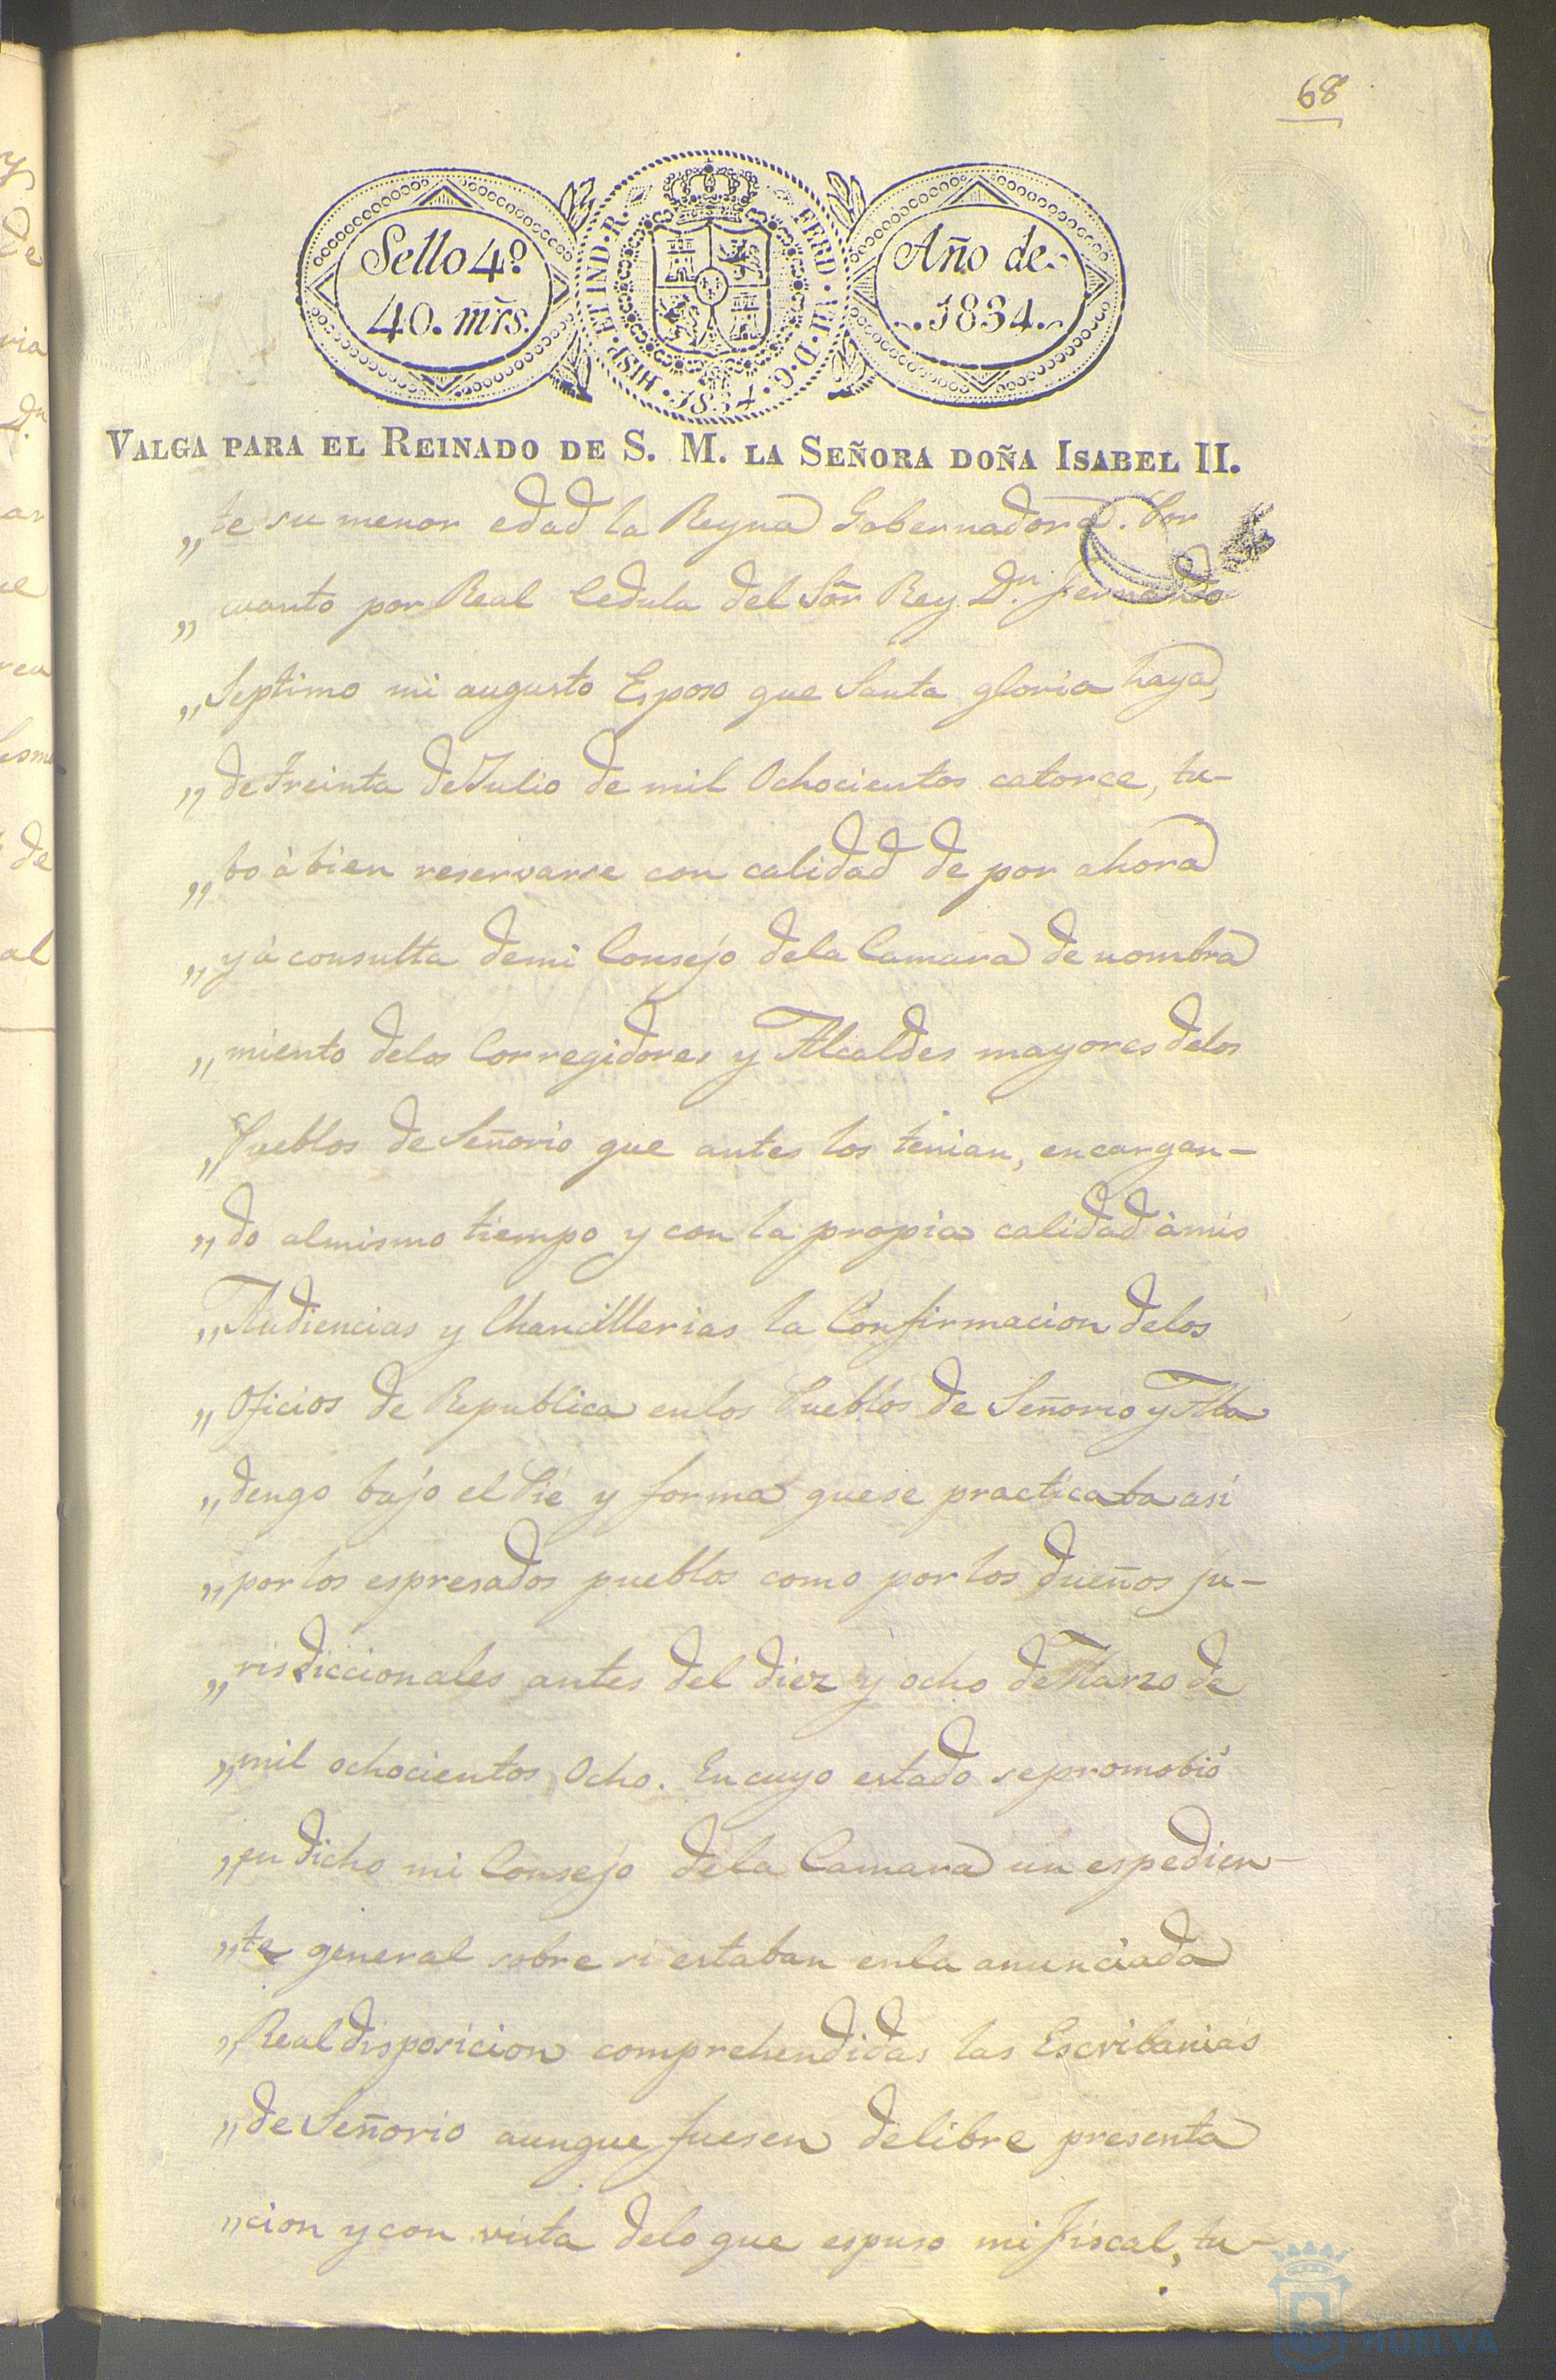 68
Sello 4º
40. mrs.
HISP. ET IND. R. FERD. VII. D. G. 1834.
Año de
1834.
VALGA PARA EL REINADO DE S. M. LA SEÑORA DOÑA ISABEL II.
„te su menor edad la Reyna Gobernadora. Por
„cuanto por Real Cedula del Sõr Rey Dn. Fernando
„Septimo mi augusto Esposo que Santa gloria haya,
„de treinta de Julio de mil Ochocientos catorce, tu-
„bo à bien reservarse con calidad de por ahora
„y à consulta de mi Consejo de la Camara de nombra
„miento delos Corregidores y Alcaldes mayores delos
„Pueblos de Señorio que antes los tenian, encargan-
„do almismo tiempo y con la propia calidad àmis
„Audiencias y Chancilllerias la Confirmacion delos
„Oficios de Republica enlos Pueblos de Señorio y Aba
„dengo bajo el Pie y forma quese practicaba asi
„por los espresados pueblos como por los dueños ju-
„risdiccionales antes del diez y ocho de Marzo de
„mil ochocientos Ocho. En cuyo estado sepromobió
„en dicho mi Consejo dela Camara un espedien-
„te general sobre si estaban enla anunciada
„Real disposicion comprehendidas las Escribanias
„de Señorio aunque fuesen delibre presenta
„cion y con vista delo que espuso mi Fiscal, tu-
HUELVA